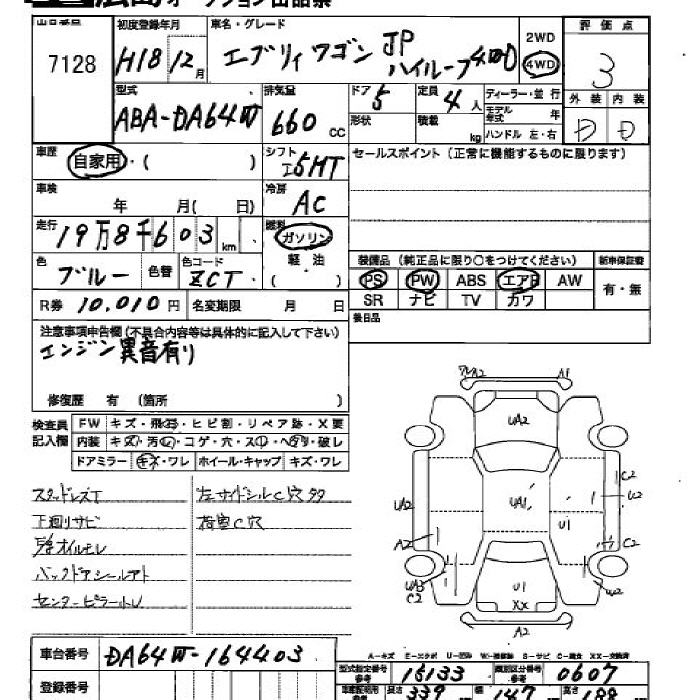 オークション出品票
出品番号
7128
初度登録年月
H18 12月
車名・グレード
エブリィワゴン JP
ハイルーフ4WD
2WD
4WD
評価点
3
外装 内装
D D
型式
ABA-DA64W
排気量
660 CC
ドア
5
定員
4人
形状
積載
kg
ディーラー・並行
モデル年式 年
ハンドル 左・右
車歴
自家用・( )
シフト
I5MT
セールスポイント(正常に機能するものに限ります)
車検
年 月( 日)
冷房
AC
走行
19万8千603km
燃料
ガソリン
軽油
( )
色
ブルー
色替
色コード
ZCT
装備品(純正品に限り○をつけてください)
新車保証書
PS PW ABS エアB AW
SR ナビ TV カワ
有・無
R券 10,010円
名変期限 月 日
後日品
注意事項申告欄(不具合内容等は具体的に記入して下さい)
エンジン異音有り
修復歴 有 (箇所 )
検査員
記入欄
FW キズ・飛石・ヒビ割・リペア跡・X要
内装 キズ・汚れ・コゲ・穴・スレ・ヘタリ・破レ
ドアミラー キズ・ワレ ホイール・キャップ キズ・ワレ
スタッドレスT
左サイドシルC穴
下廻りサビ
C穴
オイルモレ
バックドアシールアト
センターピラー小U
A2 A1
UA2
UA2
UA1
U1
C2
U2
A2
C2
UA3
C2
U1
XX
A2
A-キズ E-エクボ U-凹み W-補修跡 S-サビ C-腐食 XX-交換済
車台番号
DA64W-164403
登録番号
型式指定番号
参考
15133
類別区分番号
参考
0607
長さ 339 幅 147 高さ 188